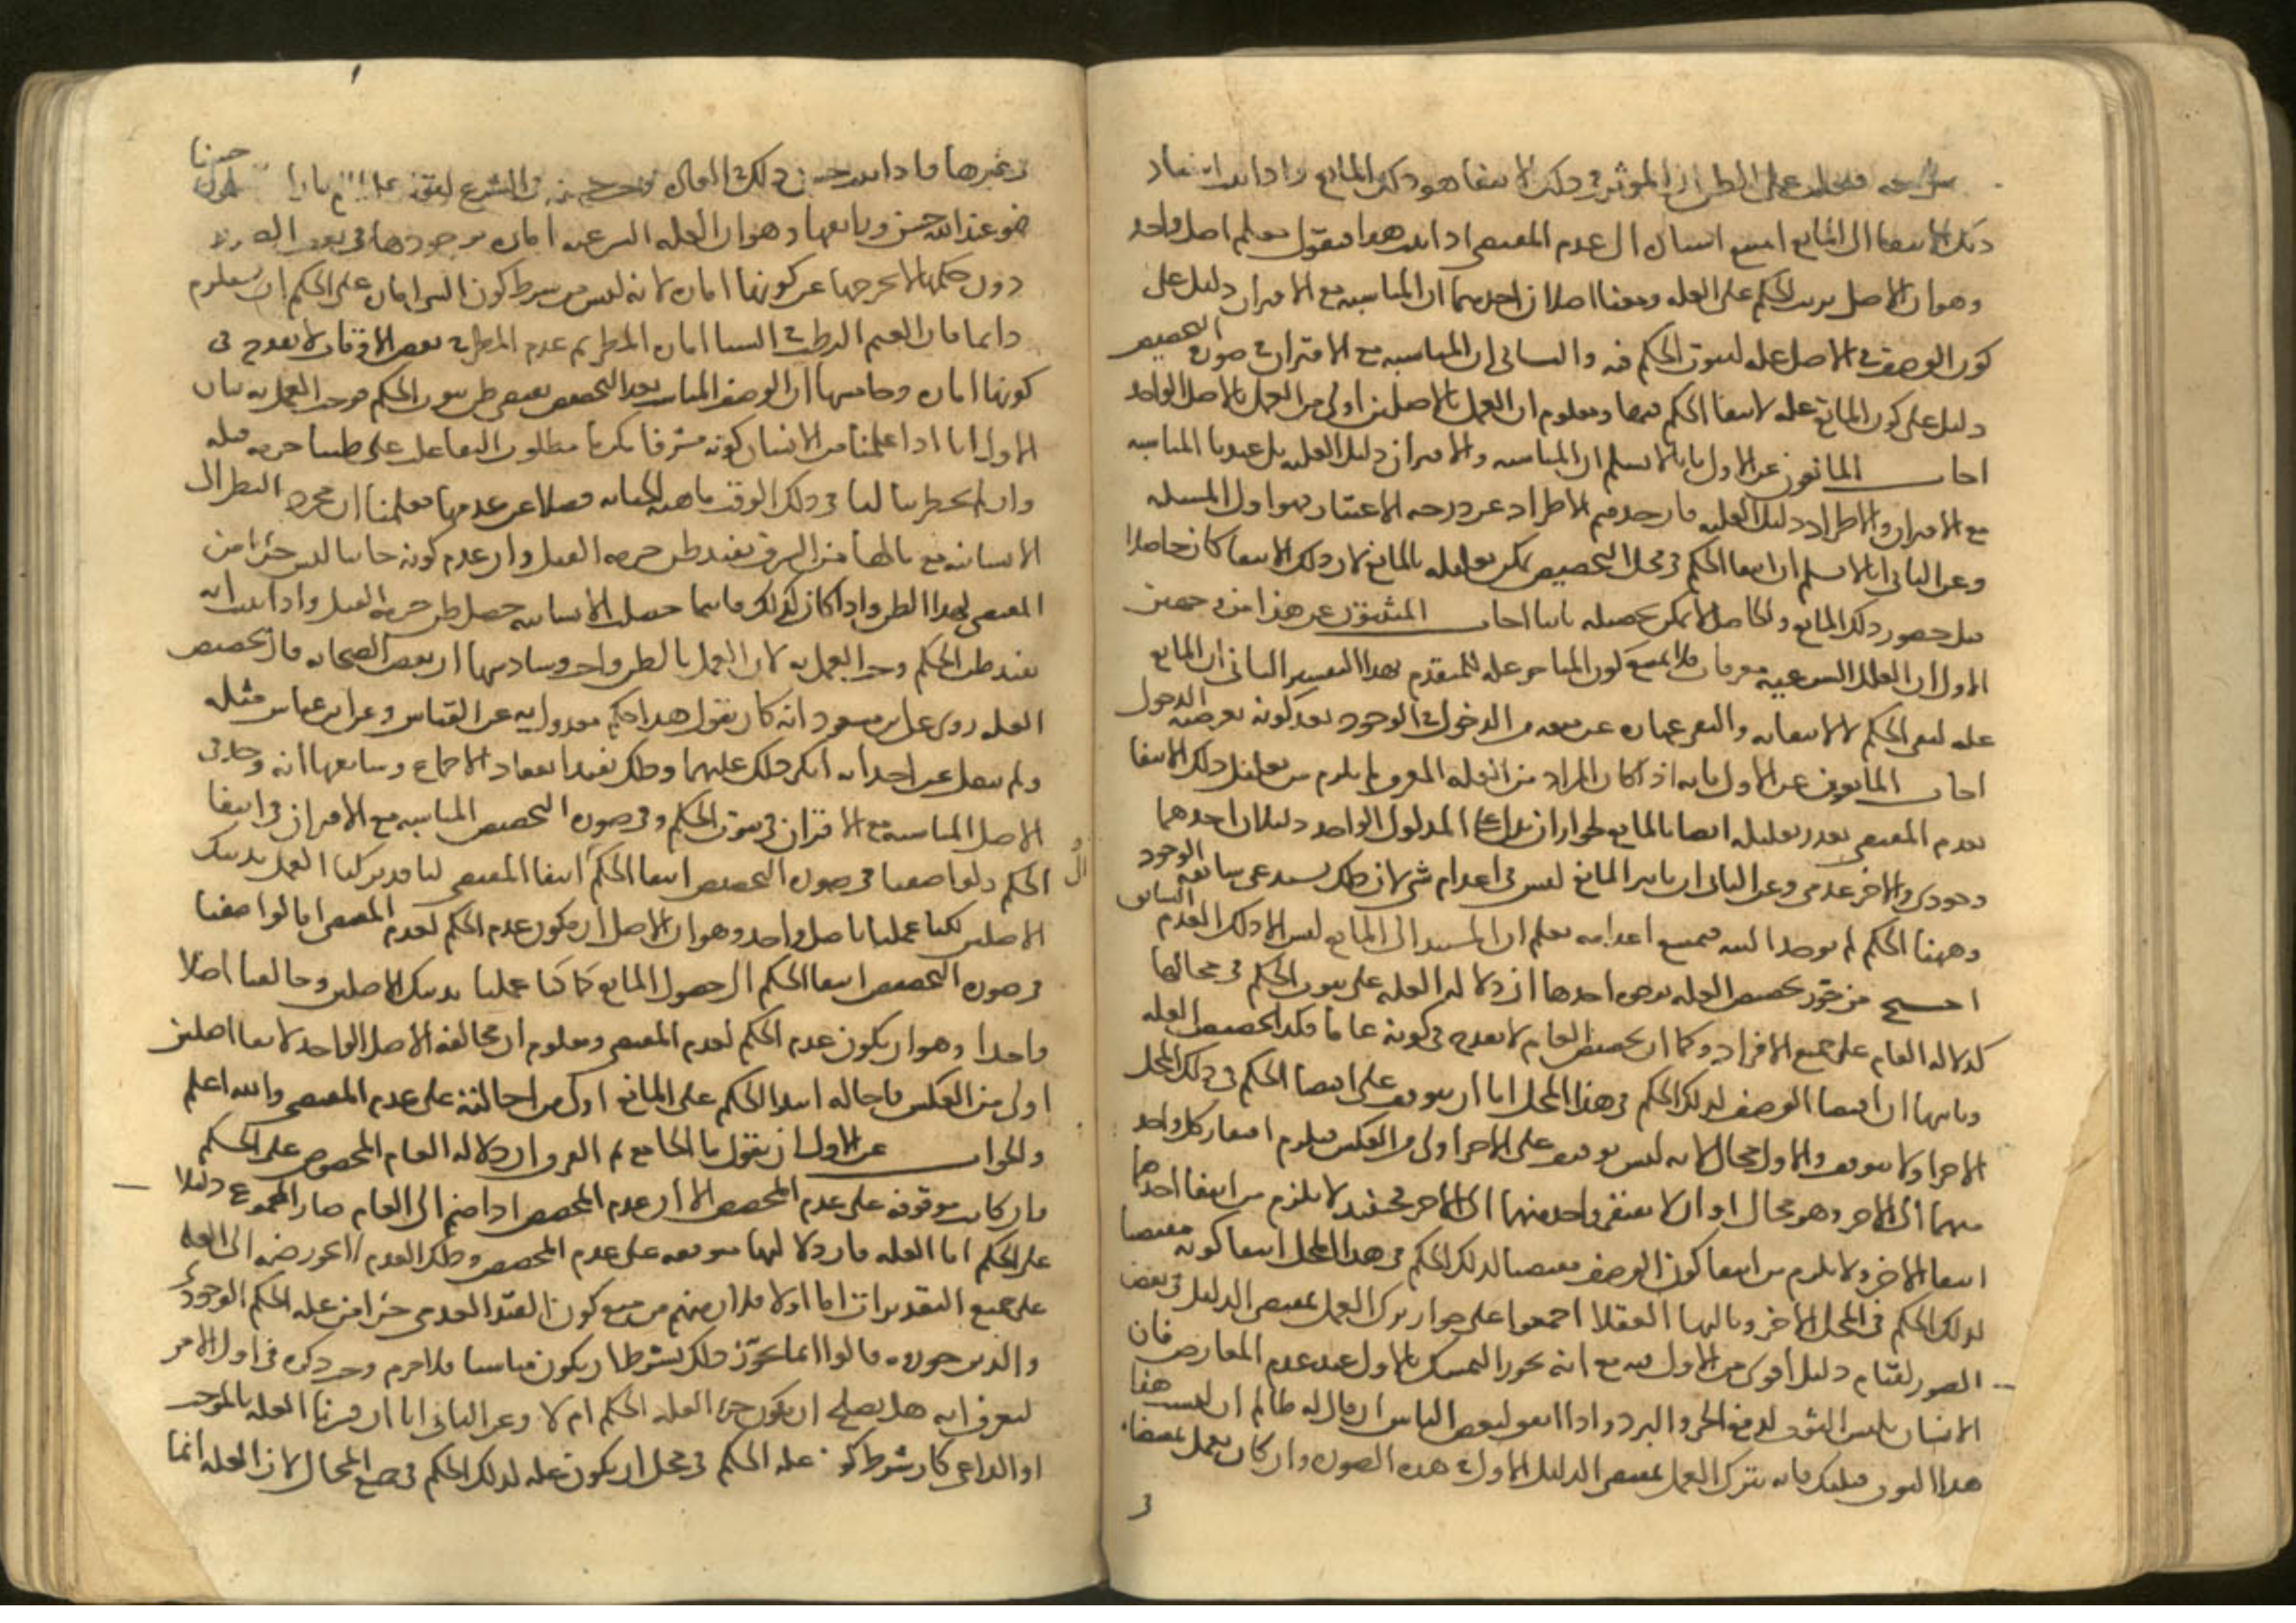 فغلب على الظن ان الموثر في ذلك الانتفا هو ذلك المانع واذا ثبت استناد
ذلك الانتفا الى المانع امتنع استناده الى عدم المقتضى اذا ثبت هذا فنقول معكم اصل واحد
وهو ان الاصل ترتب الحكم على العله ومعنا اصلان احدهما ان المناسبه مع الاقتران دليل على
كون الوصف في الاصل عله لثبوت الحكم فيه والثاني ان المناسبه مع الاقتران في صوره التخصيص
دليل على كون المانع عله لانتفا الحكم فيها ومعلوم ان العمل بالاصلين اولى من العمل بالاصل الواحد
اجاب المانعون عن الاول بانا لا نسلم ان المناسبه والاقتران دليل العليه بل عندنا المناسبه
مع الاقتران والاطراد دليل العليه فان حذفتم الاطراد عن درجه الاعتبار فهو اول المسله
وعن الثاني انا لا نسلم ان انتفا الحكم في محل التخصيص يمكن تعليله بالمانع لان ذلك الانتفا كان حاصلا
قبل حصور ذلك المانع والحاصل لا يمكن تحصيله ثانيا اجاب المثبتون عن هذا من وجهين
الاول ان العلل الشرعيه معرفات فلا يمتنع كون المتاخر عله للمتقدم بهذا التفسير الثاني ان المانع
عله لنفي الحكم لا لانتفائه والنفي عباره عن منعه من الدخول في الوجود بعد كونه بعرضيه الدخول
اجاب المانعون عن الاول بانه اذا كان المراد من العله المعرف لم يلزم من تعليل ذلك الانتفا
بعدم المقتضى تعذر تعليله ايضا بالمانع لجواز ان يدل على المدلول الواحد دليلان احدهما
وجودي والاخر عدمي وعن الثاني ان تاثير المانع ليس في اعدام شي لان ذلك يستدعي سابقه الوجود
وههنا الحكم لم يوجد البته فيمتنع اعدامه فعلم ان المستند الى المانع ليس الا ذلك العدم السابق
احتج من جوز تخصيص العله بوجوه احدها ان دلاله العله على ثبوت الحكم في محالها
كدلاله العام على جميع الافراد وكما ان تخصيص العام لا يقدح في كونه عاما فكذا تخصيص العله
وثانيها ان اقتضا الوصف لذلك الحكم في هذا المحل اما ان يتوقف على اقتضا الحكم في ذلك المحل
الاخر او لا يتوقف والاول محال لانه ليس توقف على الاخر اولى من العكس فيلزم افتقار كل واحد
منهما الى الاخر وهو محال او ان لا يفتقر واحد منهما الى الاخر فحينئذ لا يلزم من انتفا احدهما
انتفا الاخر ولا يلزم من انتفا كون الوصف مقتضيا لذلك الحكم في هذا المحل انتفا كونه مقتضيا
لذلك الحكم في المحل الاخر وثالثها العقلا اجمعوا على جواز ترك العمل بمقتضى الدليل في بعض
الصور لقيام دليل اقوى من الاول فيه مع انه يجوز التمسك بالاول عند عدم المعارض فان
الانسان يلبس الثوب لدفع الحر والبرد واذا اتفق لبعض الناس ان قال له ظالم ان لبست هذا
هذا الثوب قتلتك فانه يترك العمل بمقتضى الدليل الاول في هذه الصوره وان كان يعمل بمقتضاه
في غيرها فاذا ثبت حسن ذلك في العاده وجب حسنه في الشرع لقوله عليه السلم ما راه المسلمون حسنا
فهو عند الله حسن ورابعها وهو ان العله الشرعيه اماره فوجودها في بعض الصور
دون حكمها لا يخرجها عن كونها اماره لانه ليس من شرط كون الشي اماره على الحكم ان يستلزمه
دايما فان الغيم الرطب في الشتا اماره المطر ثم عدم المطر في بعض الاوقات لا يقدح في
كونها اماره وخامسها ان الوصف المناسب بعد التخصيص يقتضي ظن ثبوت الحكم فوجب العمل به بيان
الاول انا اذا علمنا من الانسان كونه مشرفا مكرما مطلوب البقا غلب على ظننا حرمه قتله
وان لم يخطر ببالنا في ذلك الوقت ماهيه الجنايه فضلا عن عدمها فعلمنا ان مجرد النظر الى
الانسانيه مع مالها من الشرف يفيد ظن حرمه القتل وان عدم كونه جانيا ليس جزا من
المقتضى لهذا الظن واذا كان كذلك فاينما حصلت الانسانيه حصل ظن حرمه القتل واذا ثبت انه
يفيد ظن الحكم وجب العمل به لان العمل بالظن واجب وسادسها ان بعض الصحابه قال بتخصيص
العله روى عن ابن مسعود انه كان يقول هذا حكم معدول به عن القياس وعن ابن عباس مثله
ولم ينقل عن احد انه انكر ذلك عليهما وذلك يفيد انعقاد الاجماع وسابعها انه وجد في
الاصل المناسبه مع الاقتران في ثبوت الحكم وفي صوره التخصيص المناسبه مع الاقتران في انتفا
الحكم ولو اضفنا في صوره التخصيص انتفا الحكم الى انتفا المقتضى لكنا قد تركنا العمل بذينك
الاصلين لكنا عملنا باصل واحد وهو ان الاصل ان يكون عدم الحكم لعدم المقتضى اما لو اضفنا
في صوره التخصيص انتفا الحكم الى حصول المانع كنا عملنا بذينك الاصلين وخالفنا اصلا
واحدا وهو ان يكون عدم الحكم لعدم المقتضى ومعلوم ان مخالفه الاصل الواحد لابقا اصلين
اولى من العكس فاحاله انتفا الحكم على المانع اولى من احالته على عدم المقتضى والله اعلم
والجواب عن الاول ان نقول ما الجامع ثم الفرق ان دلاله العام المخصوص على الحكم
وان كانت موقوفه على عدم المخصص الا ان عدم المخصص اذا ضم الى العام صار المجموع دليلا
على الحكم اما العله فان دلالتها متوقفه على عدم المخصص وذلك العدم لا يجوز ضمه الى العله
على جميع التقديرات اما اولا فلان منهم من منع كون القيد العدمي جزا من عله الحكم الوجودي
والذين جوزوه قالوا انما يجوز ذلك بشرط ان يكون مناسبا فلا جرم وجب ذكره في اول الامر
ليعرف انه هل يصلح ان يكون جز العله الحكم ام لا وعن الثاني انا ان فسرنا العله بالموجب
او الداعي كان شرط كونه عله الحكم في محل ان يكون عله لذلك الحكم في جميع المحال لان العله انما